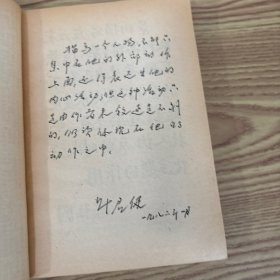 描写一个人物，不能只
集中在他的外部动作
上面，还得表达出他的
内心活动，但这种活动
是由作者来叙述是不到
的，仍须体现在他的
动作之中。
叶君健
一九八二年一月